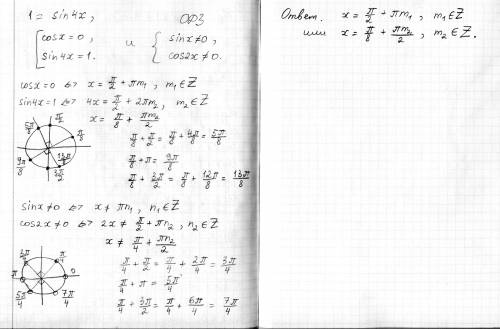 1 = sin4x,
ОДЗ
[ cosx = 0,
sin4x = 1.
и
{ sinx ≠ 0,
cos2x ≠ 0.
cosx = 0 ⇔ x = π/2 + πm₁, m₁ ∈ Z
sin4x = 1 ⇔ 4x = π/2 + 2πm₂, m₂ ∈ Z
x = π/8 + πm₂/2
π/8 + π/2 = π/8 + 4π/8 = 5π/8
π/8 + π = 9π/8
π/8 + 3π/2 = π/8 + 12π/8 = 13π/8
5π/8
π/2
π/8
9π/8
3π/2
13π/8
sinx ≠ 0 ⇔ x ≠ πn₁, n₁ ∈ Z
cos2x ≠ 0 ⇔ 2x ≠ π/2 + πn₂, n₂ ∈ Z
x ≠ π/4 + πn₂/2
π/4 + π/2 = π/4 + 2π/4 = 3π/4
π/4 + π = 5π/4
π/4 + 3π/2 = π/4 + 6π/4 = 7π/4
3π/4
π/4
π
0
5π/4
7π/4
Ответ. x = π/2 + πm₁, m₁ ∈ Z
или x = π/8 + πm₂/2, m₂ ∈ Z.